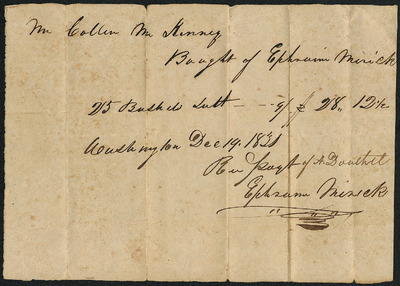 Mr Collin McKinney
Bought of Ephraim Mirick
25 Bushels Salt — 9/ $ 28,, 12½
Washington Dec 19. 1831
Rec payt of A Douthet
Ephraim Mirick